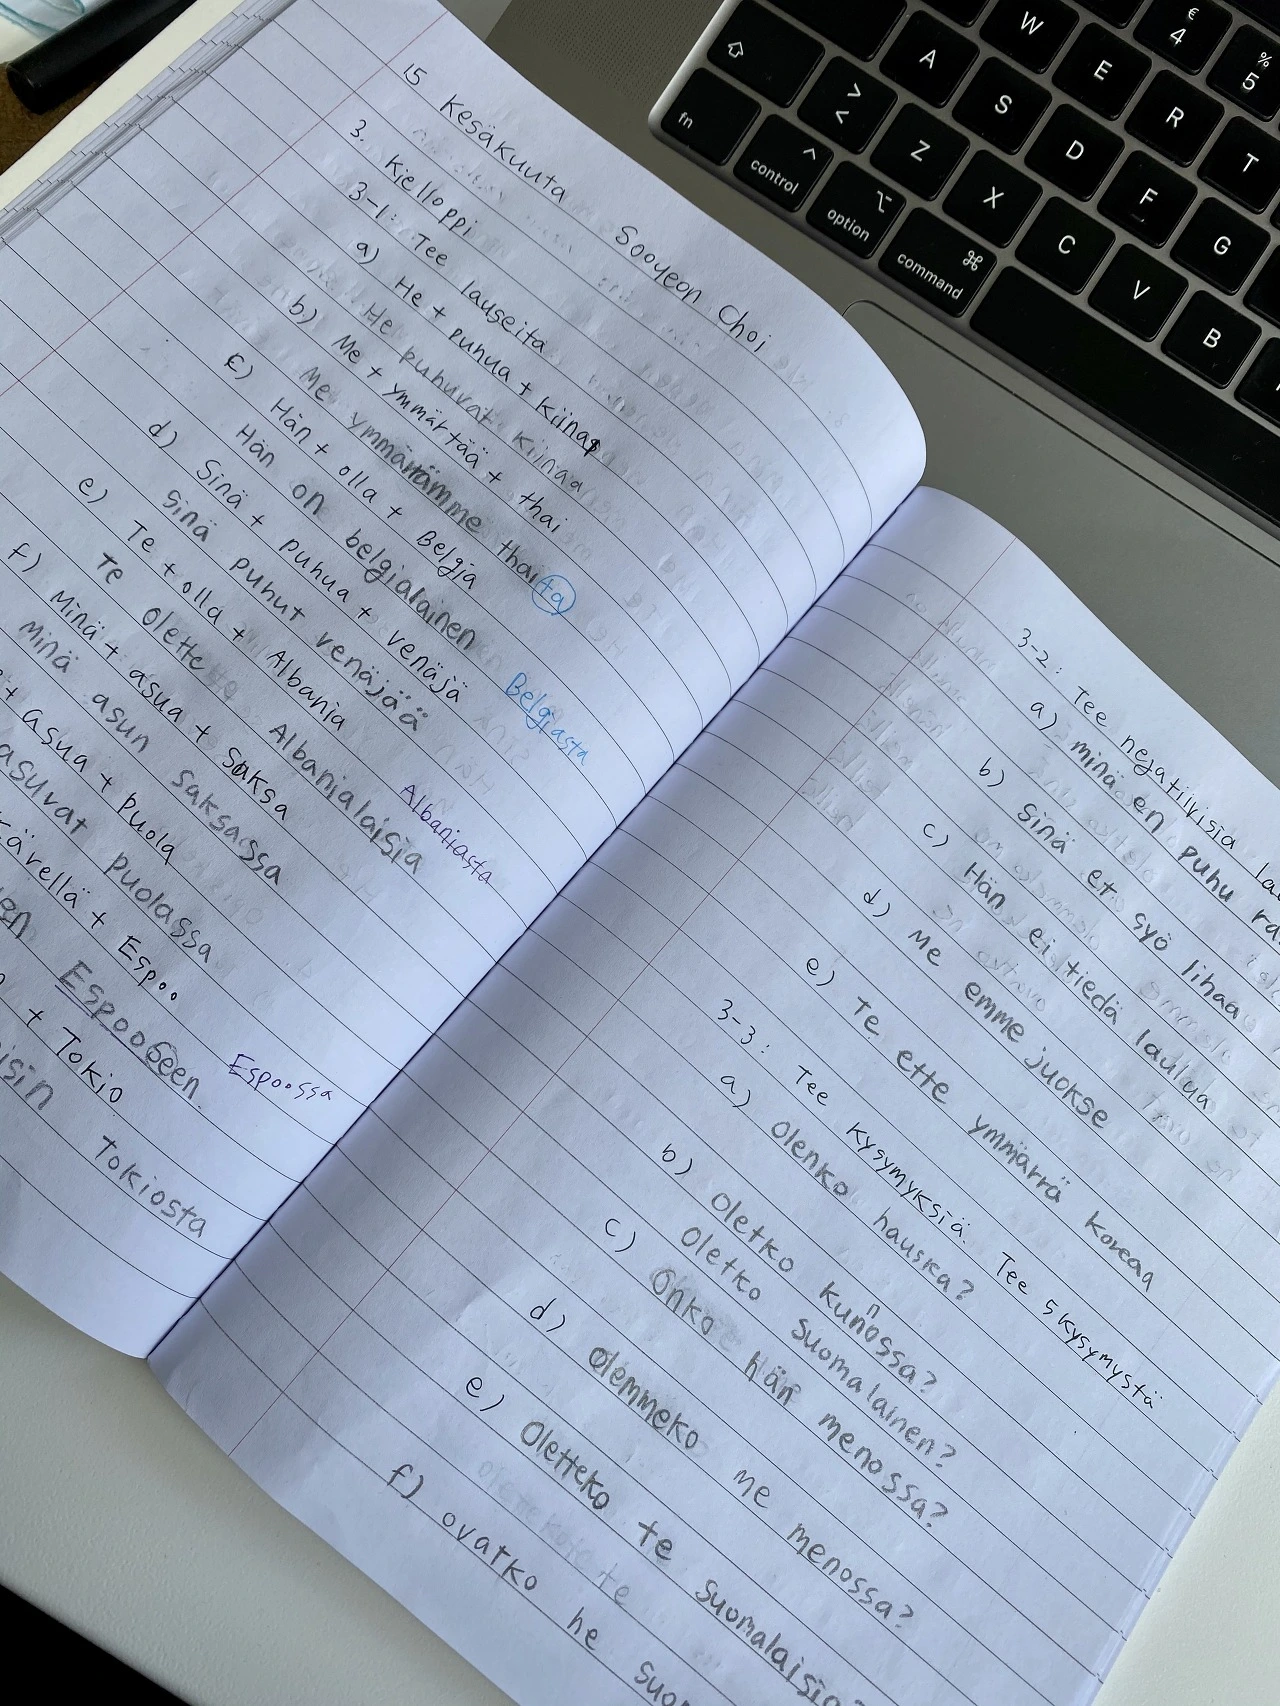 15 Kesäkuuta Sooyeon Choi
3. Kielloppi
3-1: Tee lauseita
a) He + puhua + kiina
He puhuvat kiinaa
b) Me + ymmärtää + thai
Me ymmärrämme thaita
c) Hän + olla + Belgia
Hän on belgialainen Belgiasta
d) Sinä + puhua + venäjä
Sinä puhut venäjää
e) Te + olla + Albania
Te Olette Albanialaisia Albaniasta
f) Minä + asua + Saksa
Minä asun saksassa
+ asua + puola
asuvat puolassa
+ Espoo
Espooseen. Espoossa
+ Tokio
Tokiosta
3-2: Tee negatiivisia
a) minä en puhu
b) Sinä et syö lihaa
c) Hän ei tiedä laulua
d) Me emme juokse
e) Te ette ymmärrä koreaa
3-3: Tee kysymyksiä. Tee 5 kysymystä
a) Olenko hauska?
b) Oletko kunnossa?
Oletko suomalainen?
c) Onko hän menossa?
d) Olemmeko me menossa?
e) Oletteko te suomalaisia?
f) ovatko he
fn
control
option
command
W
E
R
T
A
S
D
F
G
Z
X
C
V
B
€
4
%
5
>
<
^
⌥
⌘